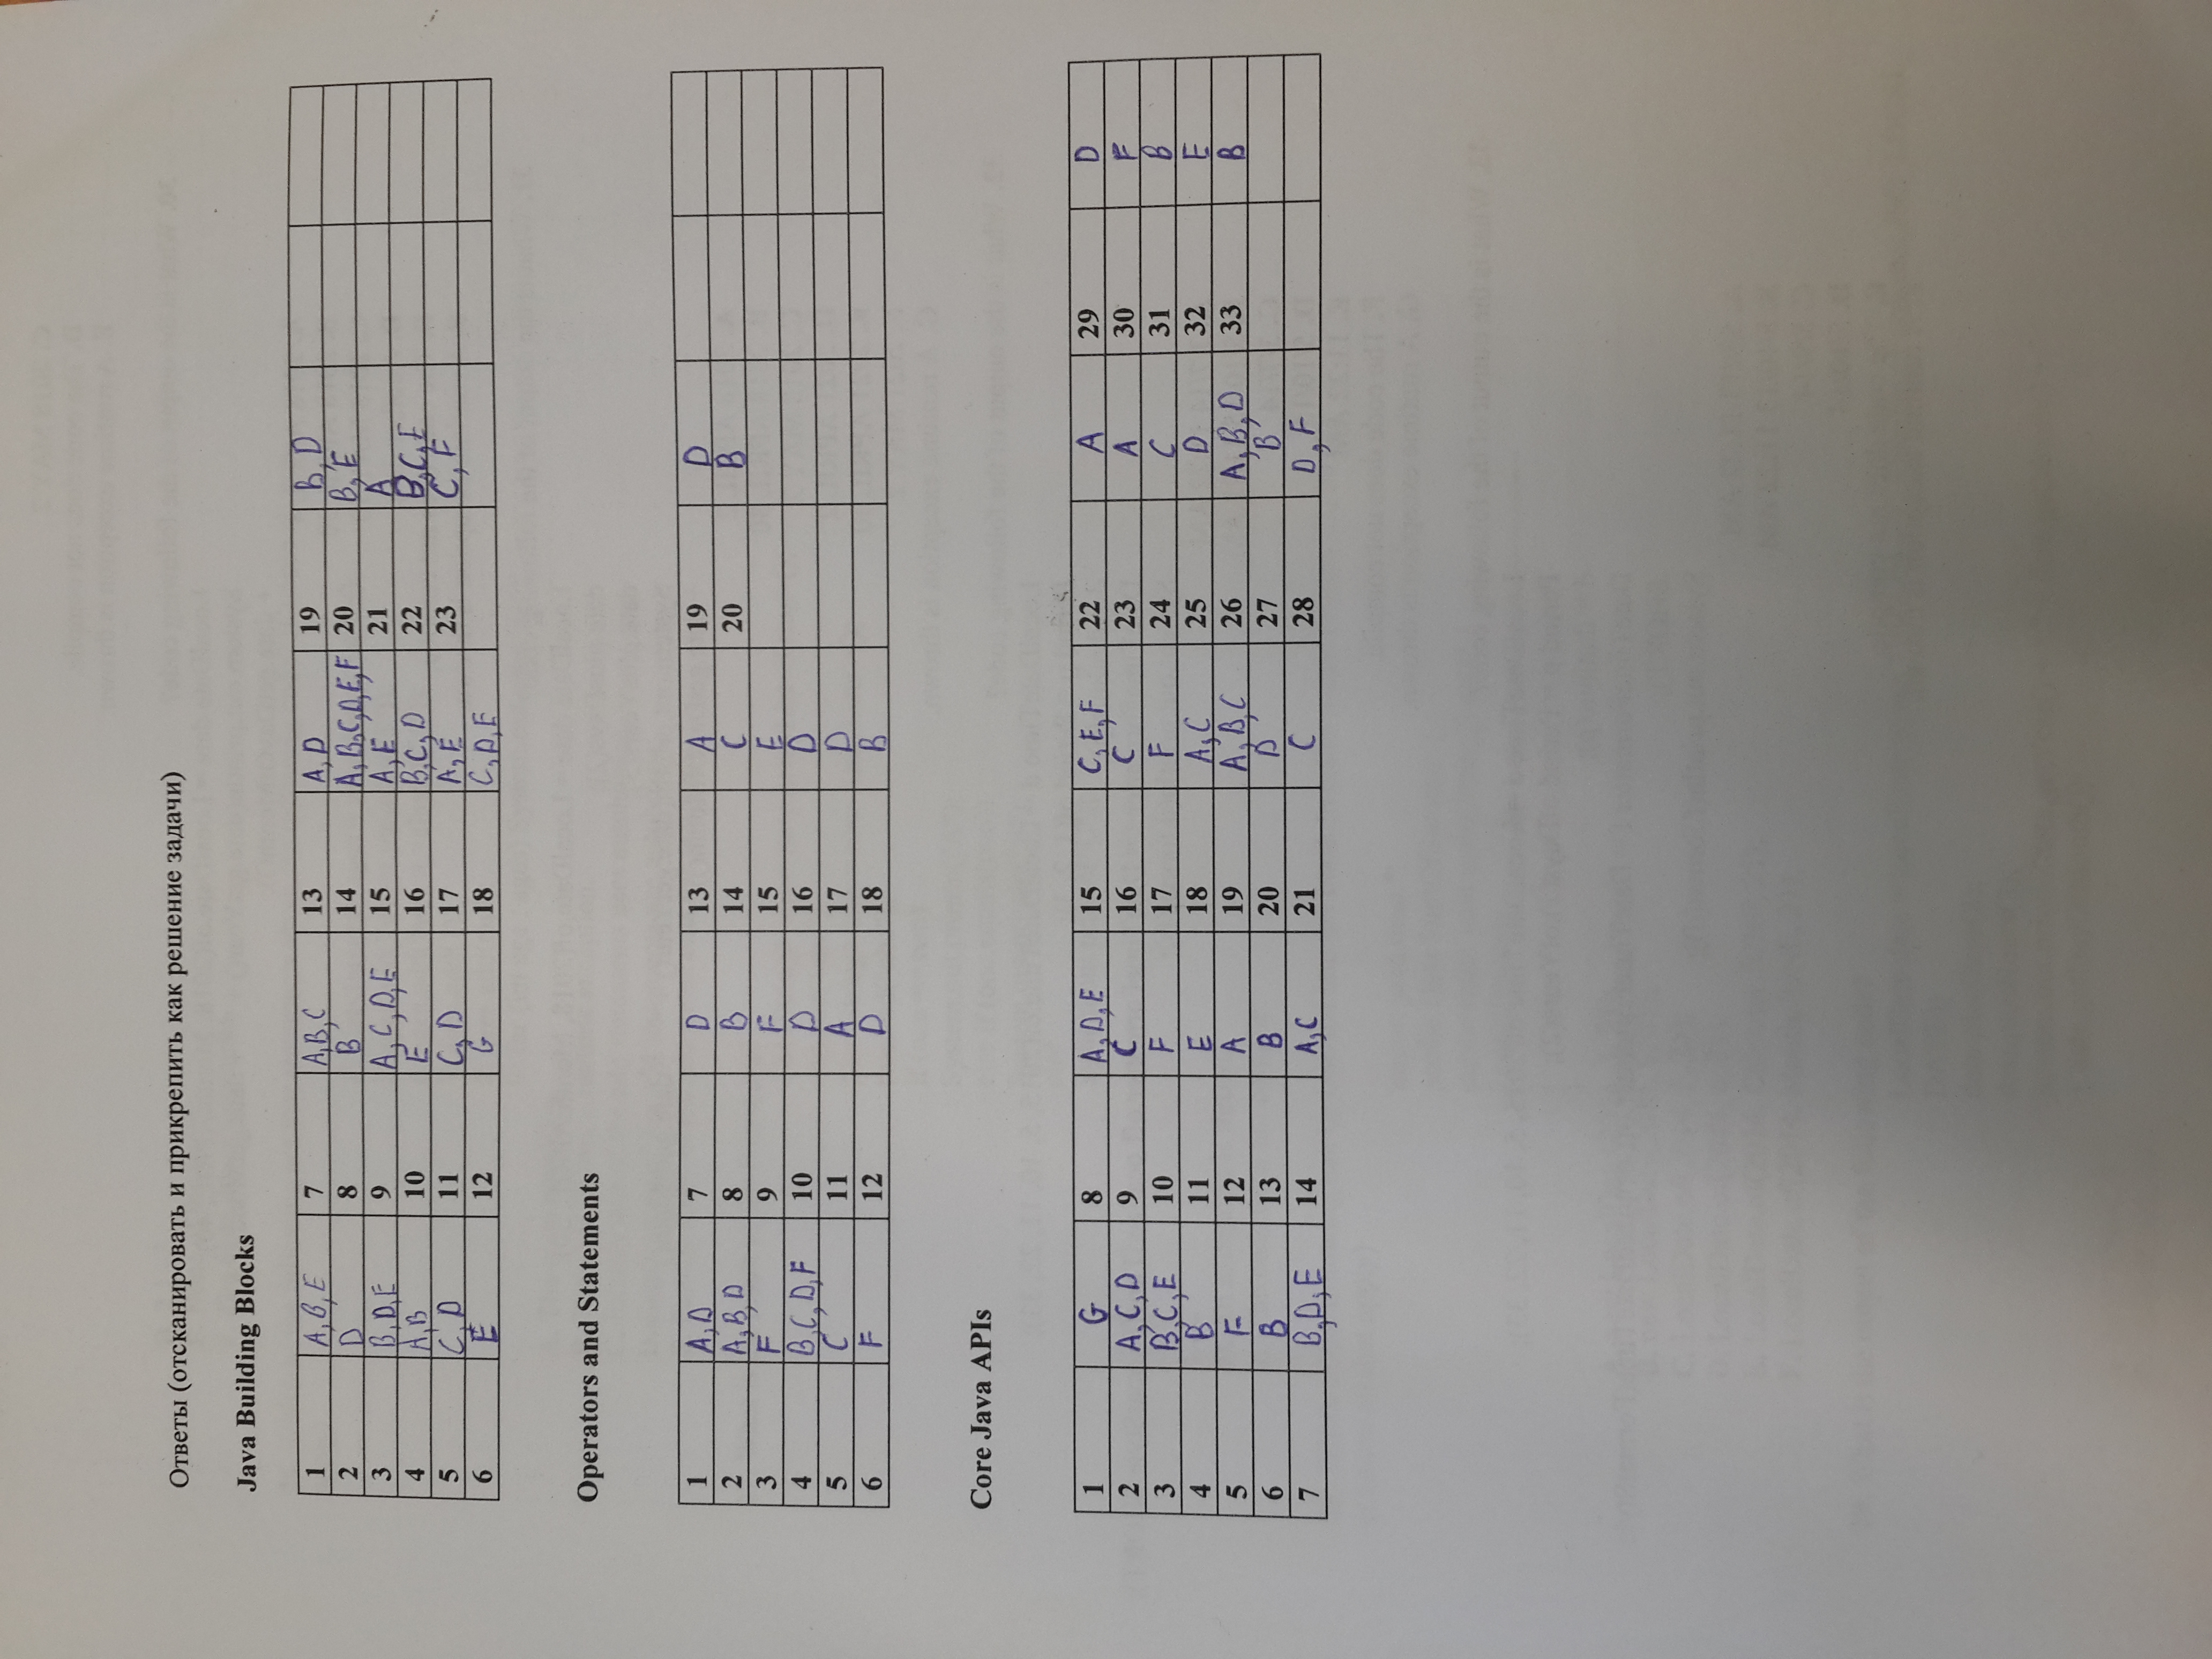 Ответы (отсканировать и прикрепить как решение задачи)
Java Building Blocks
1 A,B,E 7 A,B,C 13 A,D 19 B,D
2 D 8 B 14 A,B,C,D,E,F 20 B,E
3 B,D,E 9 A,C,D,E 15 A,E 21 A
4 A,B 10 E 16 B,C,D 22 B,C,E
5 C,D 11 C,D 17 A,E 23 C,F
6 E 12 G 18 C,D,E
Operators and Statements
1 A,D 7 D 13 A 19 D
2 A,B,D 8 B 14 C 20 B
3 F 9 F 15 E
4 B,C,D,F 10 D 16 D
5 C 11 A 17 D
6 F 12 D 18 B
Core Java APIs
1 G 8 A,D,E 15 C,E,F 22 A 29 D
2 A,C,D 9 C 16 C 23 A 30 F
3 B,C,E 10 F 17 F 24 C 31 B
4 B 11 E 18 A,C 25 D 32 E
5 F 12 A 19 A,B,C 26 A,B,D 33 B
6 B 13 B 20 D 27 B
7 B,D,E 14 A,C 21 C 28 D,F